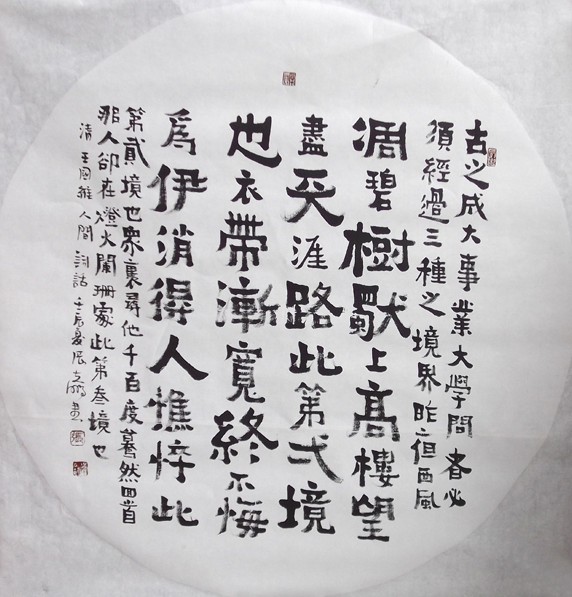 古之成大事業大學問者必
須經過三種之境界昨亱西風
凋碧樹獨上高樓望
盡天涯路此第弌境
也衣帶漸寬終不悔
為伊消得人憔悴此
第貳境也衆裏尋他千百度驀然回首
那人卻在燈火闌珊處此第叁境也
清王國維人間詞話壬辰夏張